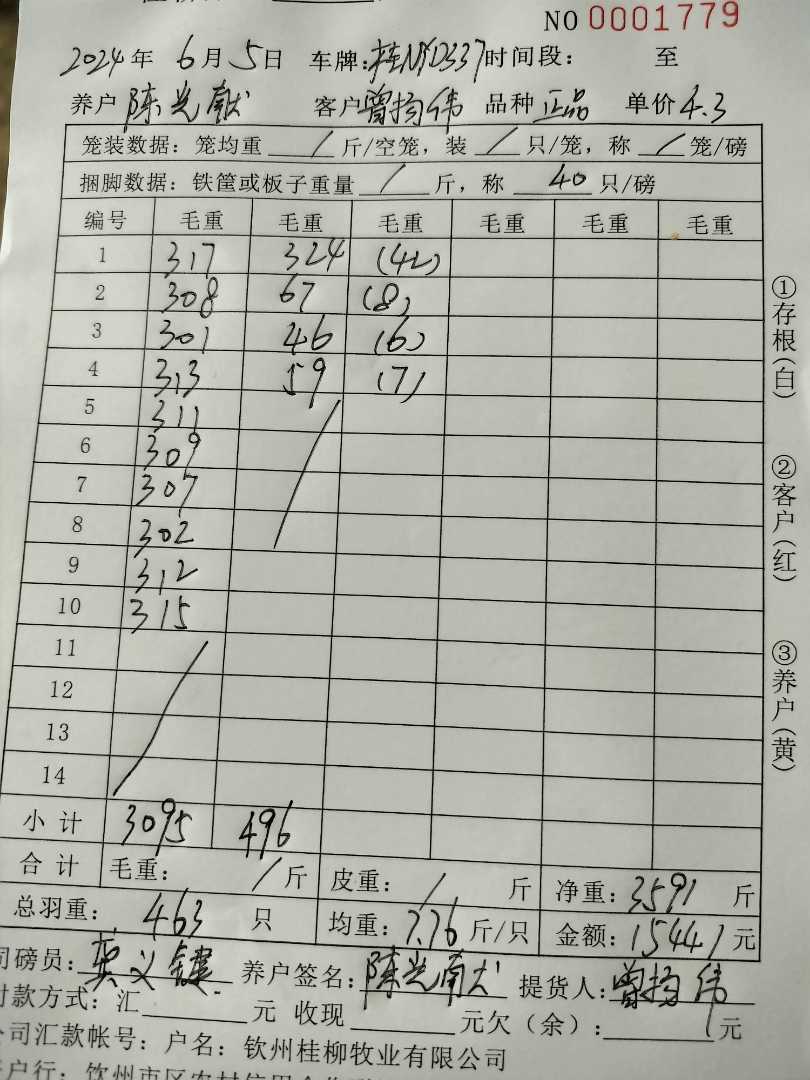 NO 0001779
2024年 6月 5日 车牌:桂NXD337 时间段: 至
养户 陈光献 客户 曾扬伟 品种 正品 单价 4.3
笼装数据: 笼均重 / 斤/空笼, 装 / 只/笼, 称 / 笼/磅
捆脚数据: 铁筐或板子重量 / 斤, 称 40 只/磅
编号 毛重 毛重 毛重 毛重 毛重 毛重
1 317 324 (42)
2 308 67 (8)
3 301 46 (6)
4 313 59 (7)
5 311
6 309
7 307
8 302
9 312
10 315
11
12
13
14
小计 3095 496
合计 毛重: / 斤 皮重: / 斤 净重: 3591 斤
总羽重: 463 只 均重: 7.76 斤/只 金额: 15441 元
司磅员: 义键 养户签名: 陈光献 提货人: 曾扬伟
付款方式: 汇 元 收现 元欠(余): / 元
公司汇款帐号: 户名: 钦州桂柳牧业有限公司
开户行: 钦州市区农村信用合作
①存根(白)
②客户(红)
③养户(黄)